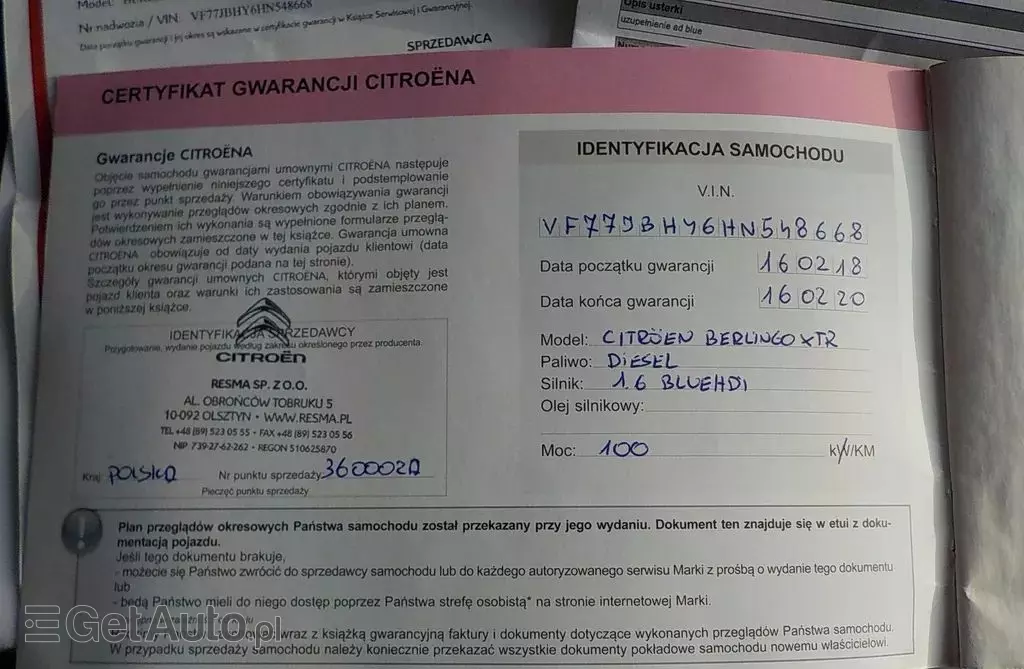 Model:
Nr nadwozia / VIN: VF77JBHY6HN548668
Data początku gwarancji i jej okres są wskazane w certyfikacie gwarancji w Książce Serwisowej i Gwarancyjnej.
SPRZEDAWCA
Opis usterki
uzupełnienie ad blue
CERTYFIKAT GWARANCJI CITROËNA
Gwarancje CITROËNA
Objęcie samochodu gwarancjami umownymi CITROËNA następuje
poprzez wypełnienie niniejszego certyfikatu i podstemplowanie
go przez punkt sprzedaży. Warunkiem obowiązywania gwarancji
jest wykonywanie przeglądów okresowych zgodnie z ich planem.
Potwierdzeniem ich wykonania są wypełnione formularze przeglą-
dów okresowych zamieszczone w tej książce. Gwarancja umowna
CITROËNA obowiązuje od daty wydania pojazdu klientowi (data
początku okresu gwarancji podana na tej stronie).
Szczegóły gwarancji umownych CITROËNA, którymi objęty jest
pojazd klienta oraz warunki ich zastosowania są zamieszczone
w poniższej książce.
IDENTYFIKACJA SPRZEDAWCY
Przygotowanie, wydanie pojazdu według zakresu określonego przez producenta.
CITROËN
RESMA SP. Z O.O.
AL. OBROŃCÓW TOBRUKU 5
10-092 OLSZTYN • WWW.RESMA.PL
TEL +48 (89) 523 05 55 • FAX +48 (89) 523 05 56
NIP 739-27-62-262 • REGON 510625870
Kraj POLSKA Nr punktu sprzedaży 360002A
Pieczęć punktu sprzedaży
IDENTYFIKACJA SAMOCHODU
V.I.N.
VF77JBHY6HN548668
Data początku gwarancji 160218
Data końca gwarancji 160220
Model: CITRÖEN BERLINGO XTR
Paliwo: DIESEL
Silnik: 1.6 BLUEHDI
Olej silnikowy:
Moc: 100 kW/KM
Plan przeglądów okresowych Państwa samochodu został przekazany przy jego wydaniu. Dokument ten znajduje się w etui z doku-
mentacją pojazdu.
Jeśli tego dokumentu brakuje,
- możecie się Państwo zwrócić do sprzedawcy samochodu lub do każdego autoryzowanego serwisu Marki z prośbą o wydanie tego dokumentu
lub
- będą Państwo mieli do niego dostęp poprzez Państwa strefę osobistą* na stronie internetowej Marki.
wraz z książką gwarancyjną faktury i dokumenty dotyczące wykonanych przeglądów Państwa samochodu.
W przypadku sprzedaży samochodu należy koniecznie przekazać wszystkie dokumenty pokładowe samochodu nowemu właścicielowi.
GetAuto.pl